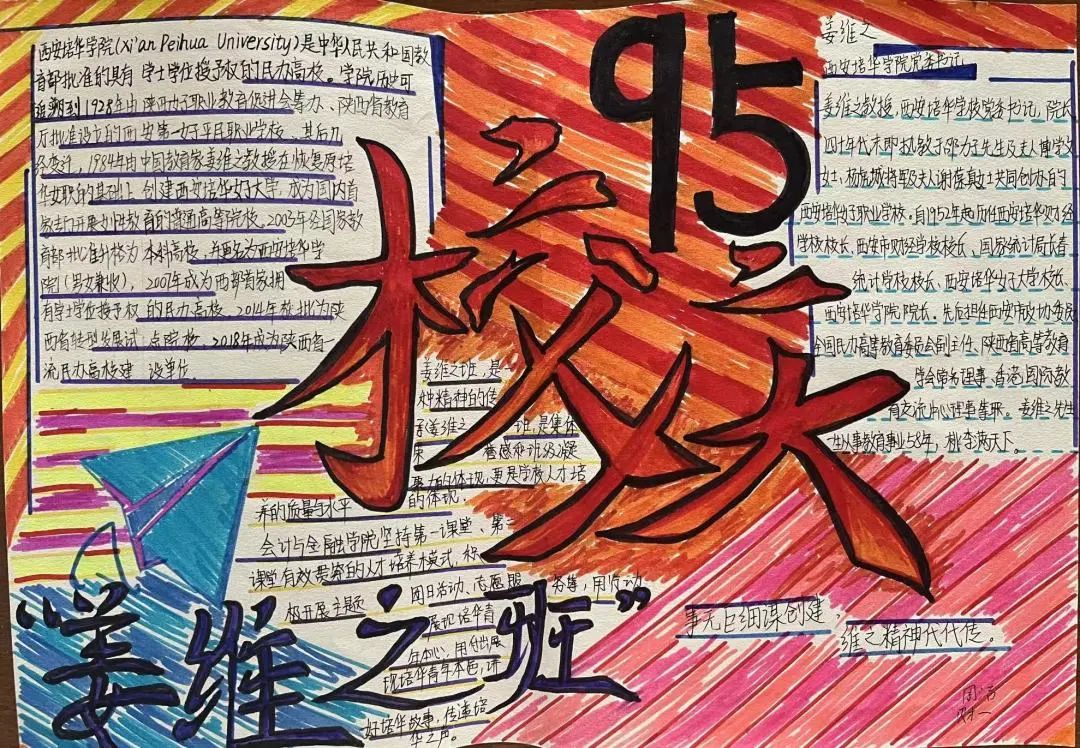 西安培华学院(Xi'an Peihua University)是中华人民共和国教
育部批准的具有 学士学位授予权的民办高校。学院历史可
追溯到1928年由陕西女子职业教育促进会筹办、陕西省教育
厅批准设立的西安第一女子平民职业学校。其后几
经变迁,1984年由中国教育家姜维之教授在恢复原培
华女职的基础上 创建西安培华女子大学,成为国内首
家去开展女性教育的普通高等学校。2003年经国家教
育部批准升格为 本科高校,并更名为西安培华学
院(男女兼收),2007年成为西部首家拥
有学士学位授予权 的民办高校。2014年获批为陕
西省转型发展试 点院校 2018年成为陕西省一
流民办高校建 设单位
95
校庆
姜维之
西安培华学院党委书记
姜维之教授,西安培华学校党委书记,院长
四十年代末即执教于
女士,杨虎城将军及夫人谢葆真女士共同创办的
西安培华女子职业学校。自1952年起历任西安培华财经
学校校长、西安市财经学校校长、国家统计局长春
统计学校校长、西安培华女子大学校长、
西安培华学院院长。先后担任西安市政协委员
全国民办高等教育委员会副主任、陕西省高等教育
学会常务理事、香港国际教
育交流中心理事等职。姜维之先生
一生从事教育事业58年,桃李满天下。
姜维之班,是
种精神的传
承姜维之 班,是集体
荣 誉感和班级凝
聚力的体现,更是学校人才培
养的质量与水平 的体现。
会计与金融学院坚持第一课堂、第二
课堂有效贯穿的人才培养模式,积
极开展主题 团日活动、志愿服 务等,用行动
展现培华青
年本心,用付出展
现培华青年本色,讲
好培华故事,传递培
华之声。
“姜维之班”
事无巨细谋创建,
维之精神代代传。
财一